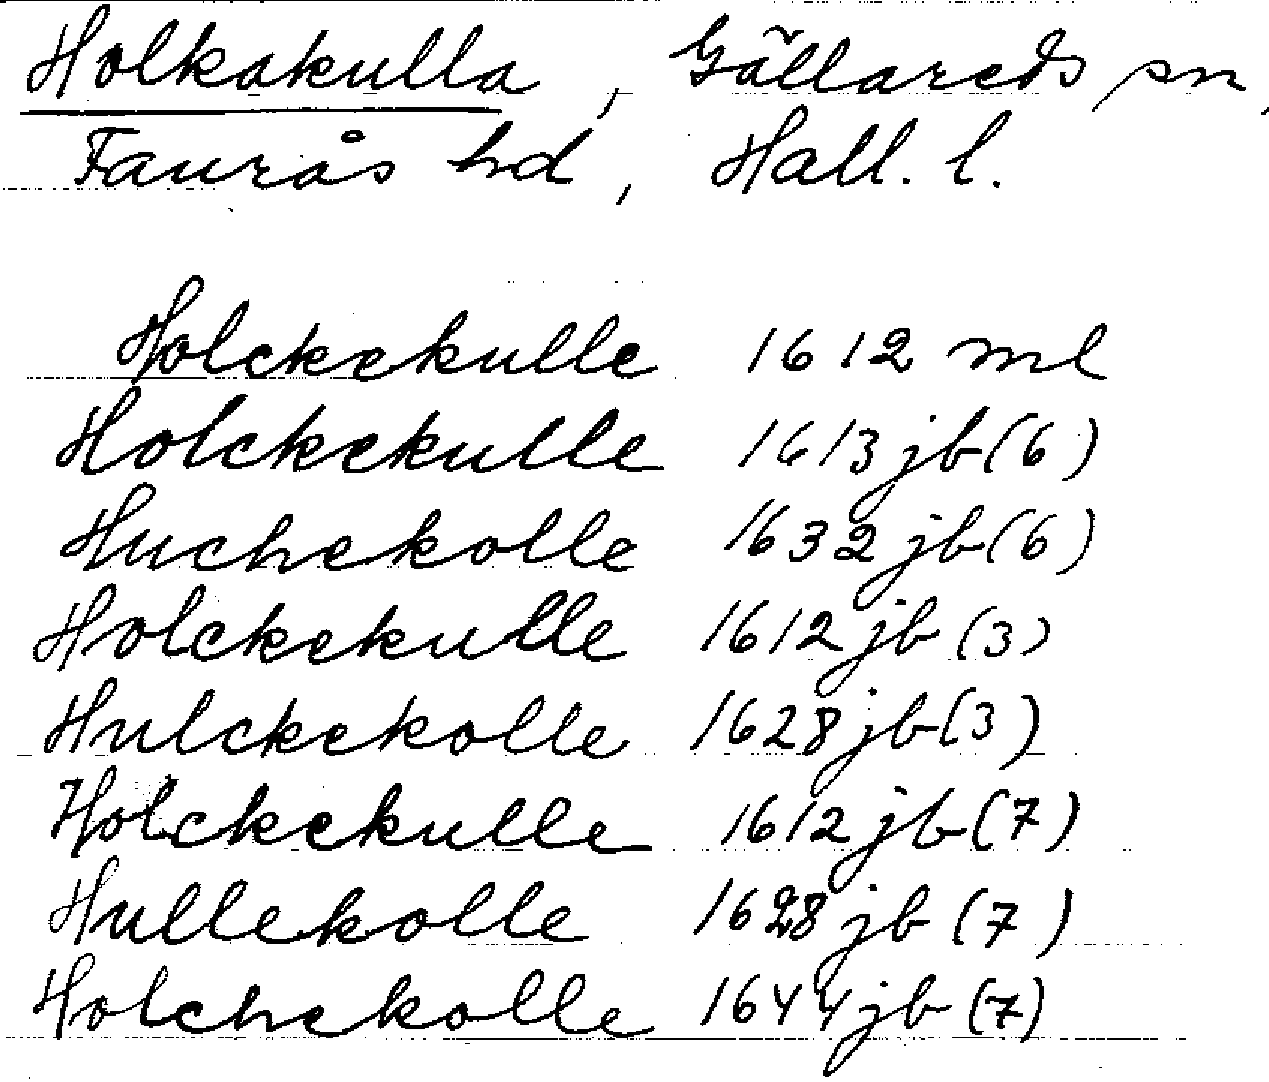 Holkakulla, Gällareds sn,
Faurås hd, Hall. l.
Holckekulle 1612 ml
Holckekulle 1613 jb (6)
Huchekolle 1632 jb (6)
Holckekulle 1612 jb (3)
Hulckekolle 1628 jb (3)
Holckekulle 1612 jb (7)
Hullekolle 1628 jb (7)
Holchekolle 1644 jb (7)